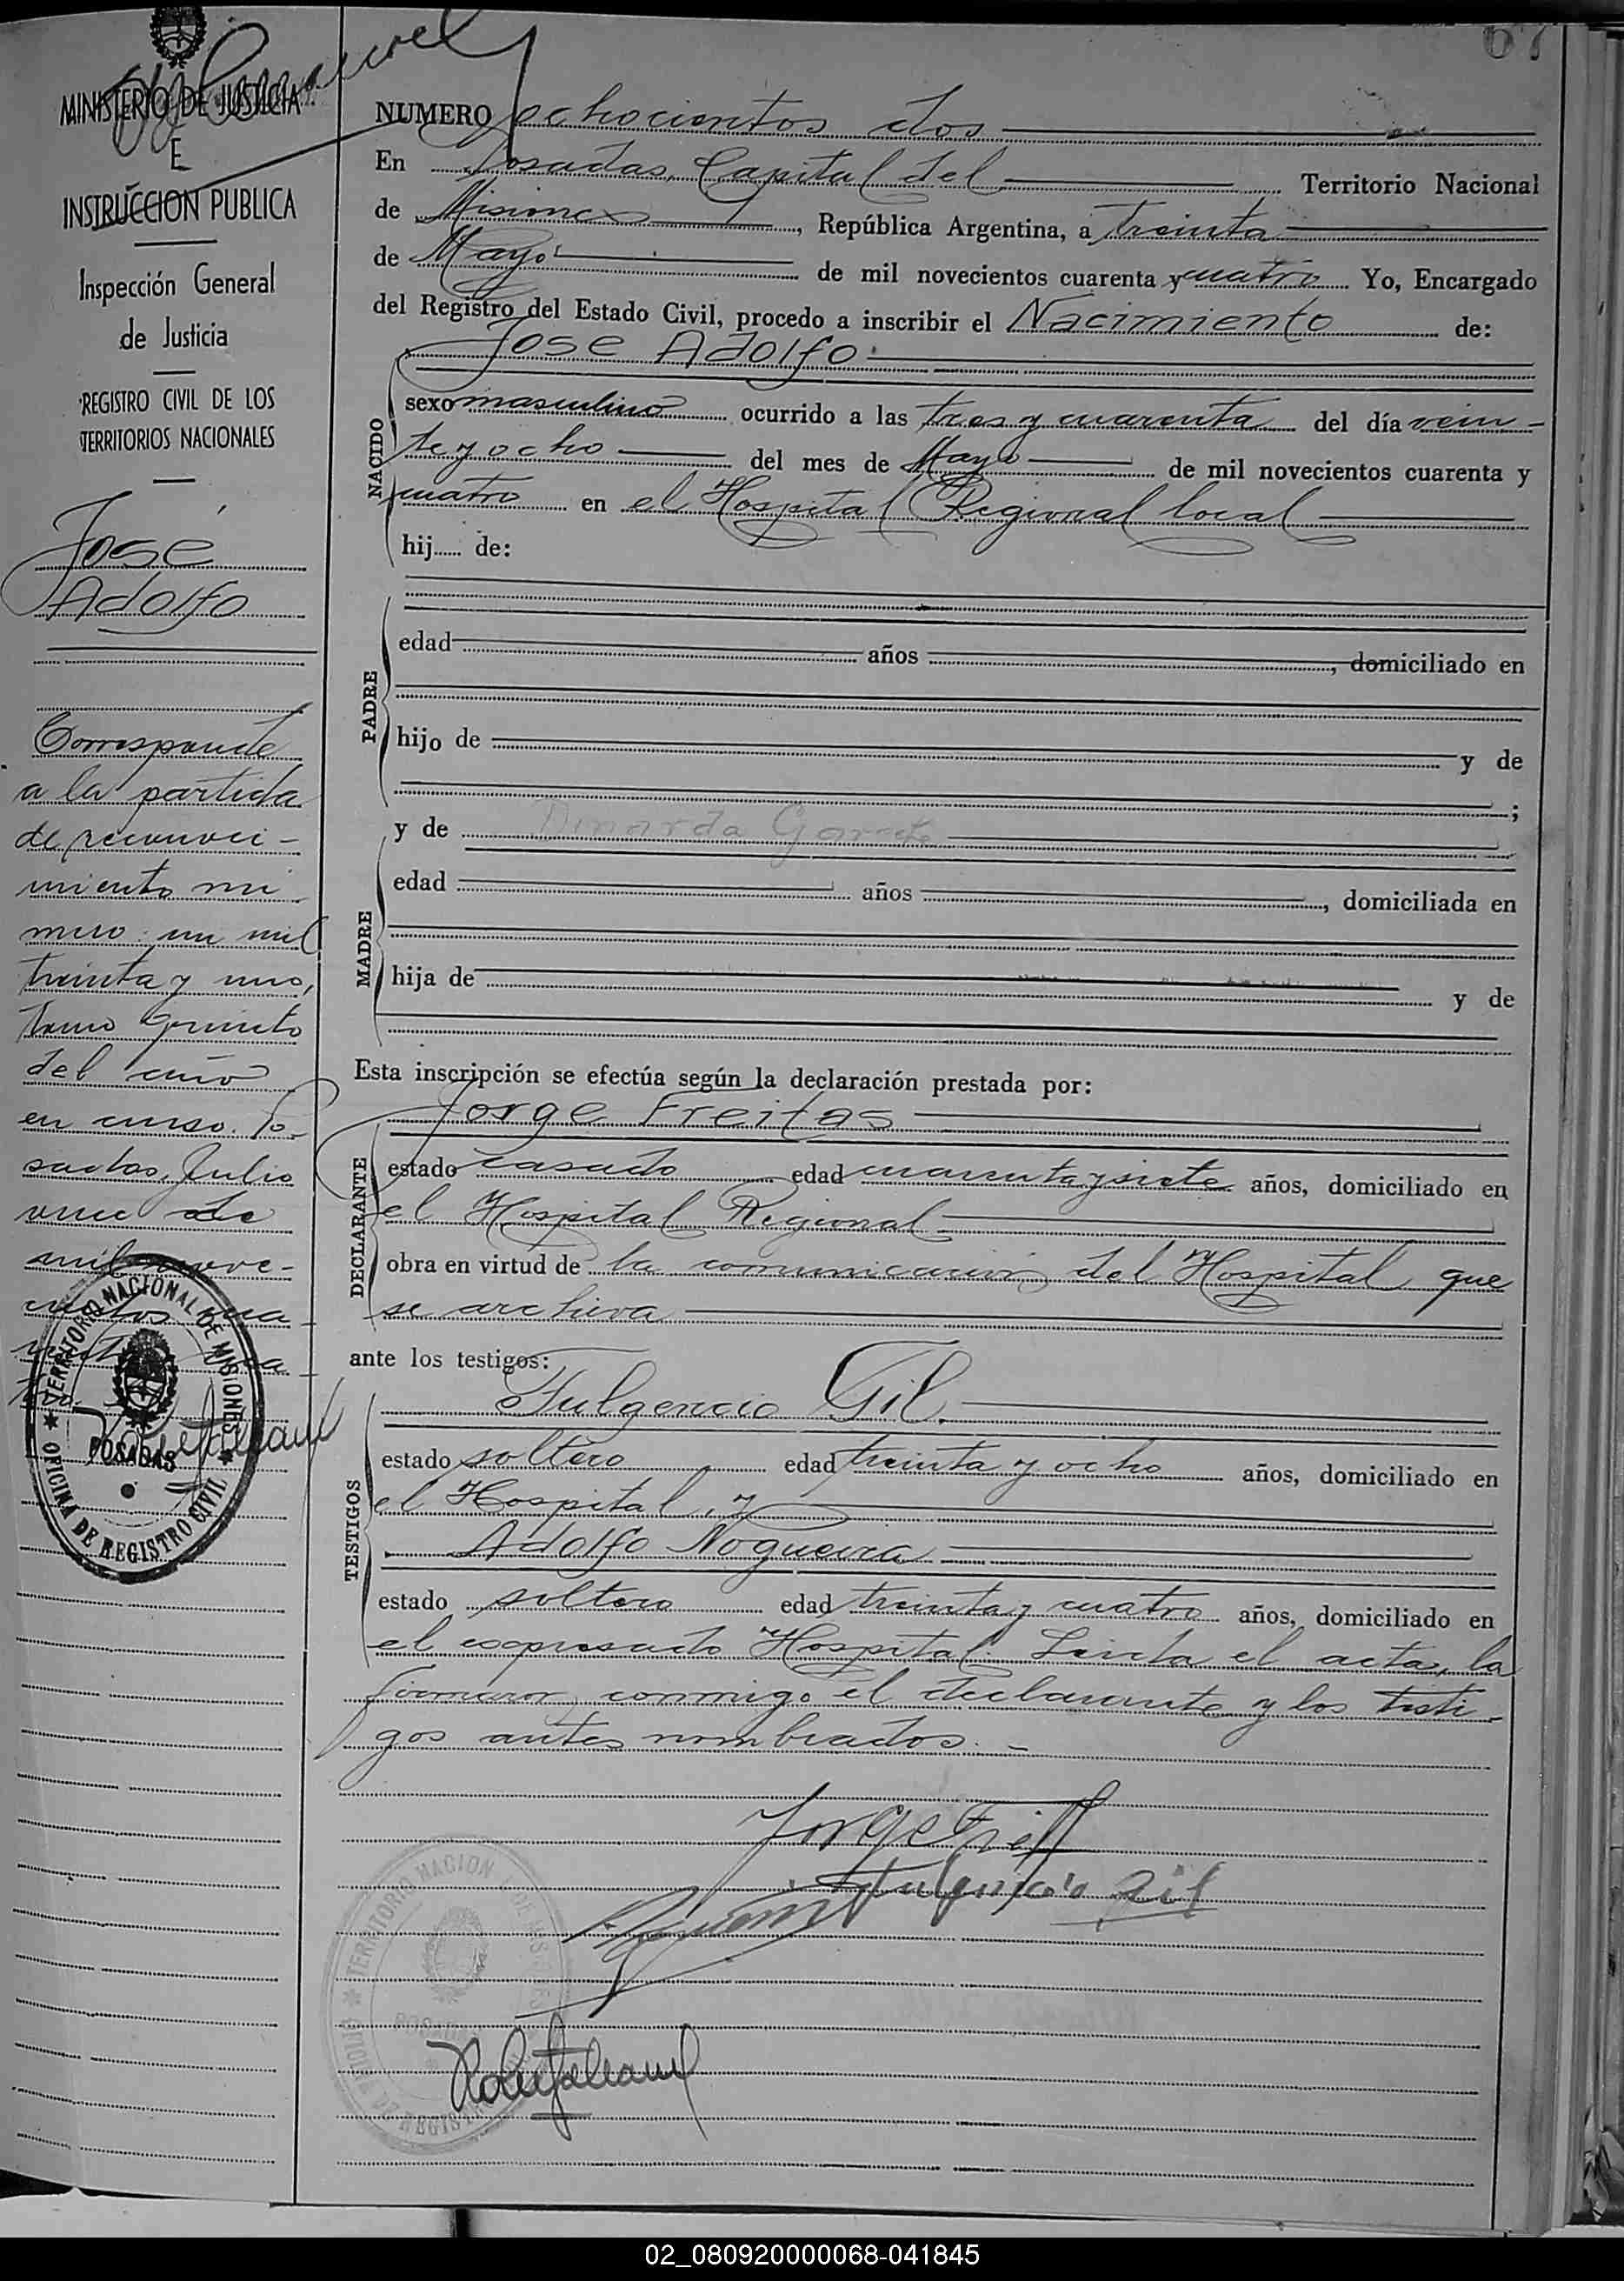 67
MINISTERIO DE JUSTICIA
E
INSTRUCCION PUBLICA
Inspección General
de Justicia
REGISTRO CIVIL DE LOS
TERRITORIOS NACIONALES
José
Adolfo
Corresponde
a la partida
de reconoci-
miento nú
mero: un mil
treinta y uno,
tomo quinto
del año
en curso. Po-
sadas, Julio
once de
mil nove-
cientos cua-
renta y cua-
tro.
TERRITORIO NACIONAL DE MISIONES
POSADAS
OFICINA DE REGISTRO CIVIL
NUMERO ochocientos dos
En Posadas, Capital del Territorio Nacional
de Misiones, República Argentina, a treinta
de Mayo de mil novecientos cuarenta y cuatro Yo, Encargado
del Registro del Estado Civil, procedo a inscribir el Nacimiento de:
José Adolfo
NACIDO
sexo masculino ocurrido a las tres y cuarenta del día vein-
te y ocho del mes de Mayo de mil novecientos cuarenta y
cuatro en el Hospital Regional local
hij...... de:
PADRE
edad años , domiciliado en
hijo de y de
;
y de
MADRE
edad años , domiciliada en
hija de y de
Esta inscripción se efectúa según la declaración prestada por:
Jorge Freitas
DECLARANTE
estado casado edad cuarenta y siete años, domiciliado en
el Hospital Regional
obra en virtud de la comunicación del Hospital que
se archiva
ante los testigos:
Fulgencio Gil.
TESTIGOS
estado soltero edad treinta y ocho años, domiciliado en
el Hospital, y
Adolfo Nogueira
estado soltero edad treinta y cuatro años, domiciliado en
el expresado Hospital. Leída el acta, la
firmaron conmigo el declarante y los testi-
gos antes nombrados.-
Jorge
Fulgencio Gil
TERRITORIO NACIONAL DE MISIONES
POSADAS
OFICINA DE REGISTRO CIVIL
02_080920000068-041845